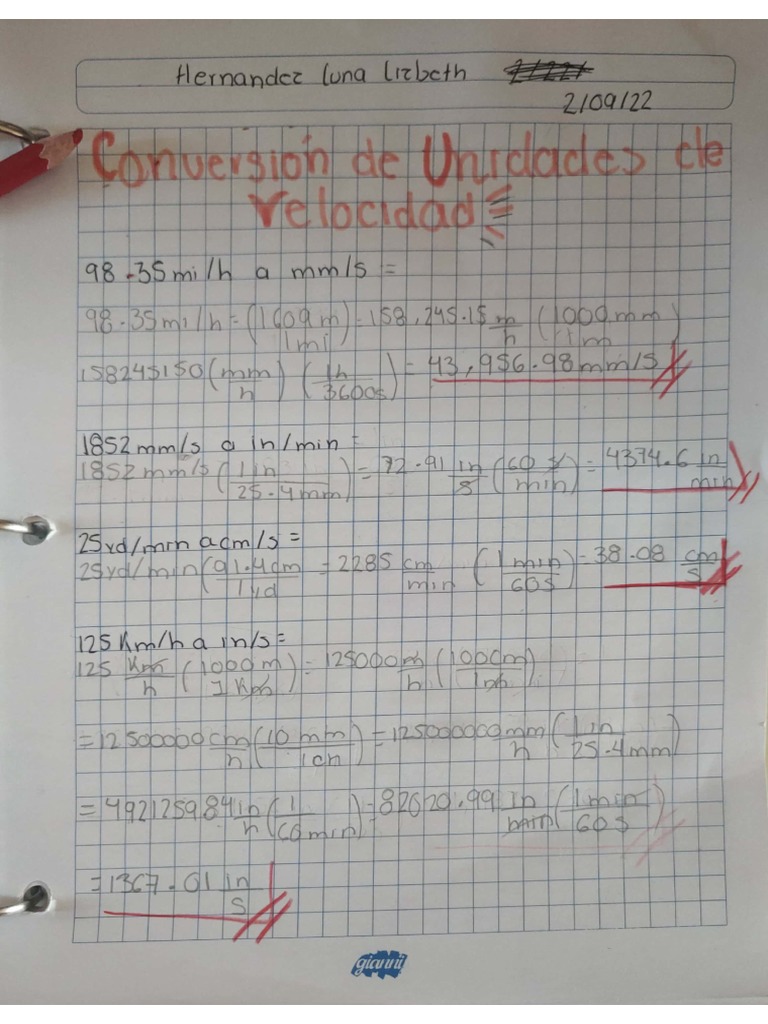 Hernandez Luna Lizbeth
2/09/22
Conversión de Unidades de
Velocidad
98.35mi/h a mm/s =
98.35mi/h = (1609m / 1mi) = 158,245.15 m/h (1000mm / 1m)
158245150 (mm/h) (1h / 3600s) = 43,956.98mm/s
1852mm/s a in/min =
1852mm/s (1in / 25.4mm) = 72.91 in/s (60 s / min) = 4374.6 in/min
25yd/min a cm/s =
25yd/min (91.4cm / 1yd = 2285 cm/min (1min / 60s) = 38.08 cm/s
125Km/h a in/s =
125 Km/h (1000m / 1Km) = 125000 m/h (100cm / 1m)
= 12500000 cm/h (10mm / 1cm) = 125000000 mm/h (1in / 25.4mm)
= 4921259.84 in/h (1 / 60min) = 82020.99 in/min (1min / 60s)
= 1367.01 in/s
gianni